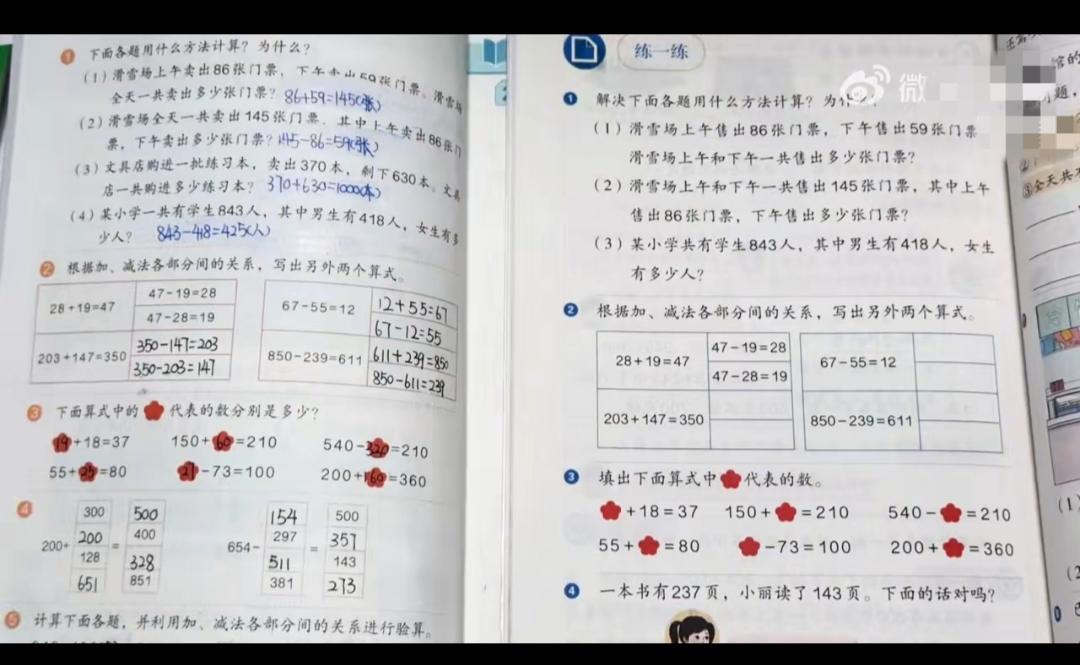 1 下面各题用什么方法计算？为什么？
(1) 滑雪场上午卖出86张门票，下午卖出59张门票。滑雪场
全天一共卖出多少张门票？ 86+59=145(张)
(2) 滑雪场全天一共卖出145张门票，其中上午卖出86张门
票，下午卖出多少张门票？ 145-86=59(张)
(3) 文具店购进一批练习本，卖出370本，剩下630本。文具
店一共购进多少练习本？ 370+630=1000(本)
(4) 某小学一共有学生843人，其中男生有418人，女生有多
少人？ 843-418=425(人)
2 根据加、减法各部分间的关系，写出另外两个算式。
28+19=47
47-19=28
47-28=19
67-55=12
12+55=67
67-12=55
203+147=350
350-147=203
350-203=147
850-239=611
611+239=850
850-611=239
3 下面算式中的 代表的数分别是多少？
19+18=37 150+60=210 540-320=210
55+25=80 27-73=100 200+160=360
4
200+
300
200
128
651
=
500
400
328
851
654-
154
297
511
381
=
500
357
143
273
5 计算下面各题，并利用加、减法各部分间的关系进行验算。
练一练
微
1 解决下面各题用什么方法计算？为什么？
(1) 滑雪场上午售出86张门票，下午售出59张门票
滑雪场上午和下午一共售出多少张门票？
(2) 滑雪场上午和下午一共售出145张门票，其中上午
售出86张门票，下午售出多少张门票？
(3) 某小学共有学生843人，其中男生有418人，女生
有多少人？
2 根据加、减法各部分间的关系，写出另外两个算式。
28+19=47
47-19=28
47-28=19
67-55=12
203+147=350
850-239=611
3 填出下面算式中 代表的数。
+18=37 150+ =210 540- =210
55+ =80 -73=100 200+ =360
4 一本书有237页，小丽读了143页。下面的话对吗？
馆的
题，
③全天共
(1)
(2